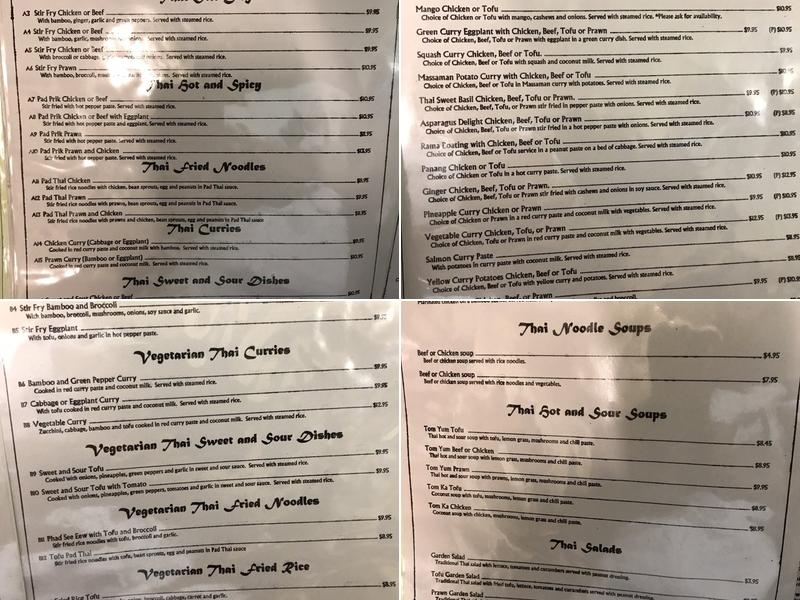 A3 Stir Fry Chicken or Beef $9.95
With bamboo, ginger, garlic and green peppers. Served with steamed rice.
A4 Stir Fry Chicken or Beef $9.95
With bamboo, garlic, onions. Served with steamed rice.
A5 Stir Fry Chicken or Beef $9.95
With broccoli or cabbage, Served with steamed rice.
A6 Stir Fry Prawn $10.95
With bamboo, broccoli, Served with steamed rice.
Thai Hot and Spicy
A7 Pad Prik Chicken or Beef $10.95
Stir fried with hot pepper paste. Served with steamed rice.
A8 Pad Prik Chicken or Beef with Eggplant $10.95
Stir fried with hot pepper paste and eggplant. Served with steamed rice.
A9 Pad Prik Prawn
Stir fried with hot pepper paste. Served with steamed rice.
A10 Pad Prik Prawn and Chicken
Stir fried with hot pepper paste. Served with steamed rice.
Thai Fried Noodles
A11 Pad Thai Chicken
Stir fried rice noodles with chicken, bean sprouts, egg and peanuts in Pad Thai sauce.
A12 Pad Thai Prawn
Stir fried rice noodles with prawns, bean sprouts, egg and peanuts in Pad Thai sauce.
A13 Pad Thai Prawn and Chicken
Stir fried rice noodles with prawns and chicken, bean sprouts, egg and peanuts in Pad Thai sauce
Thai Curries
A14 Chicken Curry (Cabbage or Eggplant)
Cooked in red curry paste and coconut milk with bamboo. Served with steamed rice.
A15 Prawn Curry (Bamboo or Eggplant)
Cooked in red curry paste and coconut milk. Served with steamed rice.
Thai Sweet and Sour Dishes
Mango Chicken or Tofu $10.95
Choice of Chicken or Tofu with mango, cashews and onions. Served with steamed rice. *Please ask for availability.
Green Curry Eggplant with Chicken, Beef, Tofu or Prawn $9.95 (P) $10.95
Choice of Chicken, Beef, Tofu or Prawn with eggplant in a green curry dish. Served with steamed rice.
Squash Curry Chicken, Beef or Tofu. $9.95
Choice of Chicken, Beef or Tofu with squash and coconut milk. Served with steamed rice.
Massaman Potato Curry with Chicken, Beef or Tofu
Choice of Chicken, Beef or Tofu in Massaman curry with potatoes. Served with steamed rice.
Thai Sweet Basil Chicken, Beef, Tofu or Prawn. $9.95 (P) $10.95
Choice of Chicken, Beef, Tofu or Prawn stir fried in pepper paste with onions. Served with steamed rice.
Asparagus Delight Chicken, Beef, Tofu or Prawn $10.95
Choice of Chicken, Beef, Tofu or Prawn stir fried in a hot pepper paste with onions. Served with steamed rice.
Rama Coating with Chicken, Beef or Tofu $10.95
Choice of Chicken, Beef or Tofu service in a peanut paste on a bed of cabbage. Served with steamed rice.
Panang Chicken or Tofu $10.95
Choice of Chicken or Tofu in a hot curry paste. Served with steamed rice.
Ginger Chicken, Beef, Tofu or Prawn. $10.95 (P) $12.95
Choice of Chicken, Beef, Tofu or Prawn stir fried with cashews and onions in soy sauce. Served with steamed rice.
Pineapple Curry Chicken or Prawn $9.95 (P) $10.95
Choice of Chicken or Prawn in a red curry paste and coconut milk with vegetables. Served with steamed rice.
Vegetable Curry Chicken, Tofu, or Prawn
Choice of Chicken, Tofu or Prawn in red curry paste and coconut milk with vegetables. Served with steamed rice.
Salmon Curry Paste
With potatoes in curry paste with coconut milk. Served with steamed rice.
Yellow Curry Potatoes Chicken, Beef or Tofu
Choice of Chicken, Beef or Tofu with yellow curry and potatoes. Served with steamed rice.
$9.95
B4 Stir Fry Bamboo and Broccoli
With bamboo, broccoli, mushrooms, onions, soy sauce and garlic.
B5 Stir Fry Eggplant
With tofu, onions and garlic in hot pepper paste.
Vegetarian Thai Curries
B6 Bamboo and Green Pepper Curry $9.95
Cooked in red curry paste and coconut milk. Served with steamed rice.
B7 Cabbage or Eggplant Curry $9.95
With tofu cooked in red curry paste and coconut milk. Served with steamed rice.
B8 Vegetable Curry $12.95
Zucchini, cabbage, bamboo and tofu cooked in red curry paste and coconut milk. Served with steamed rice.
Vegetarian Thai Sweet and Sour Dishes
B9 Sweet and Sour Tofu $9.95
Cooked with onions, pineapples, green peppers and garlic in sweet and sour sauce. Served with steamed rice.
B10 Sweet and Sour Tofu with Tomato $9.95
Cooked with onions, pineapples, green peppers, tomatoes and garlic in sweet and sour sauce. Served with steamed rice.
Vegetarian Thai Fried Noodles
B11 Phad See Eew with Tofu and Broccoli $9.95
Stir fried rice noodles with tofu, broccoli and garlic.
B12 Tofu Pad Thai $8.95
Stir fried rice noodles with tofu, bean sprouts, egg and peanuts in Pad Thai sauce
Vegetarian Thai Fried Rice
Fried Rice Tofu $8.95
Thai Noodle Soups
Beef or Chicken soup $4.95
Beef or chicken soup served with rice noodles.
Beef or Chicken soup $7.95
Beef or chicken soup served with rice noodles and vegetables.
Thai Hot and Sour Soups
Tom Yum Tofu $8.45
Thai hot and sour soup with tofu, lemon grass, mushrooms and chili paste.
Tom Yum Beef or Chicken $8.95
Thai hot and sour soup with lemon grass, mushrooms and chili paste.
Tom Yum Prawn $9.95
Thai hot and sour soup with prawns, lemon grass, mushrooms and chili paste.
Tom Ka Tofu $8.95
Coconut soup with tofu, mushrooms, lemon grass and chili paste.
Tom Ka Chicken $8.95
Coconut soup with chicken, mushrooms, lemon grass and chili paste.
Thai Salads
Garden Salad
Traditional Thai salad with lettuce, tomatoes and cucumbers served with peanut dressing.
Tofu Garden Salad $3.95
Traditional Thai salad with fried tofu, lettuce, tomatoes and cucumbers served with peanut dressing.
Prawn Garden Salad